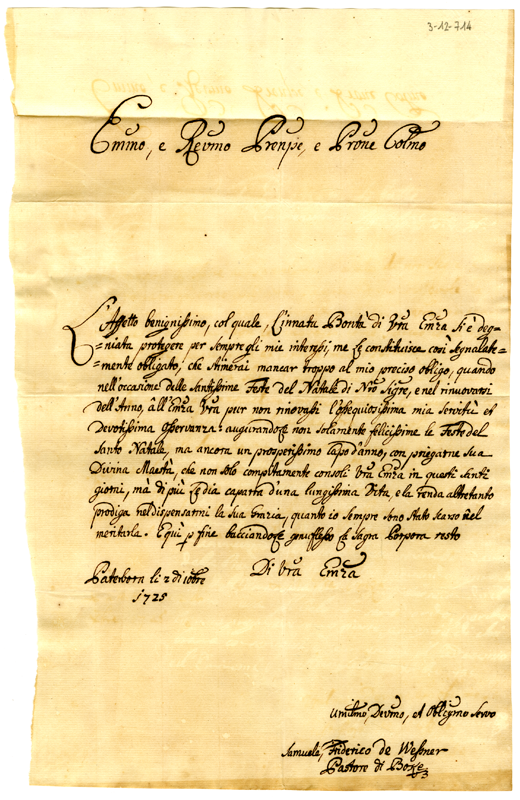 3-12-714
Emino, e Revmo Prenpe, e Prone Colmo
L'Affetto benignissimo, col quale, l'innata Bontà di Vra Emza si è deg-
=niata protegere per sempre gli mie interessi, me le constituisce così segnallate-
=mente obligato, che stimerai mancar troppo al mio preciso obligo, quando
nell'occasione delle Santissime Feste del Natale di Nro Sigre, e nel rinuovarsi
dell'Anno, âll'Emza Vra pur non rinovassi l'ossequiosissima mia Servitù et
Devotissima osservanza: augurandole non solamente felicissime le Feste del
Santo Natale, ma ancora un prosperissimo Capo d'anno, con priegarne Sua
Divina Maestà, che non solo compitamente consoli Vra Emza in questi Santi
giorni, mà di più le dia caparra d'una lungissima Vita, e la renda altretanto
prodiga nel dispensarmi la sua Grazia, quanto io sempre sono stato scarso nel
meritarla. E qui p fine bacciandole genuflesso la Sagra Porpora resto
Di Vra Emza
Paterborn li 2 di xbre
1725
Umilmo, Devmo, et Oblgmo Servo
Samuele, Friderico de Wessner
Pastore di Borke